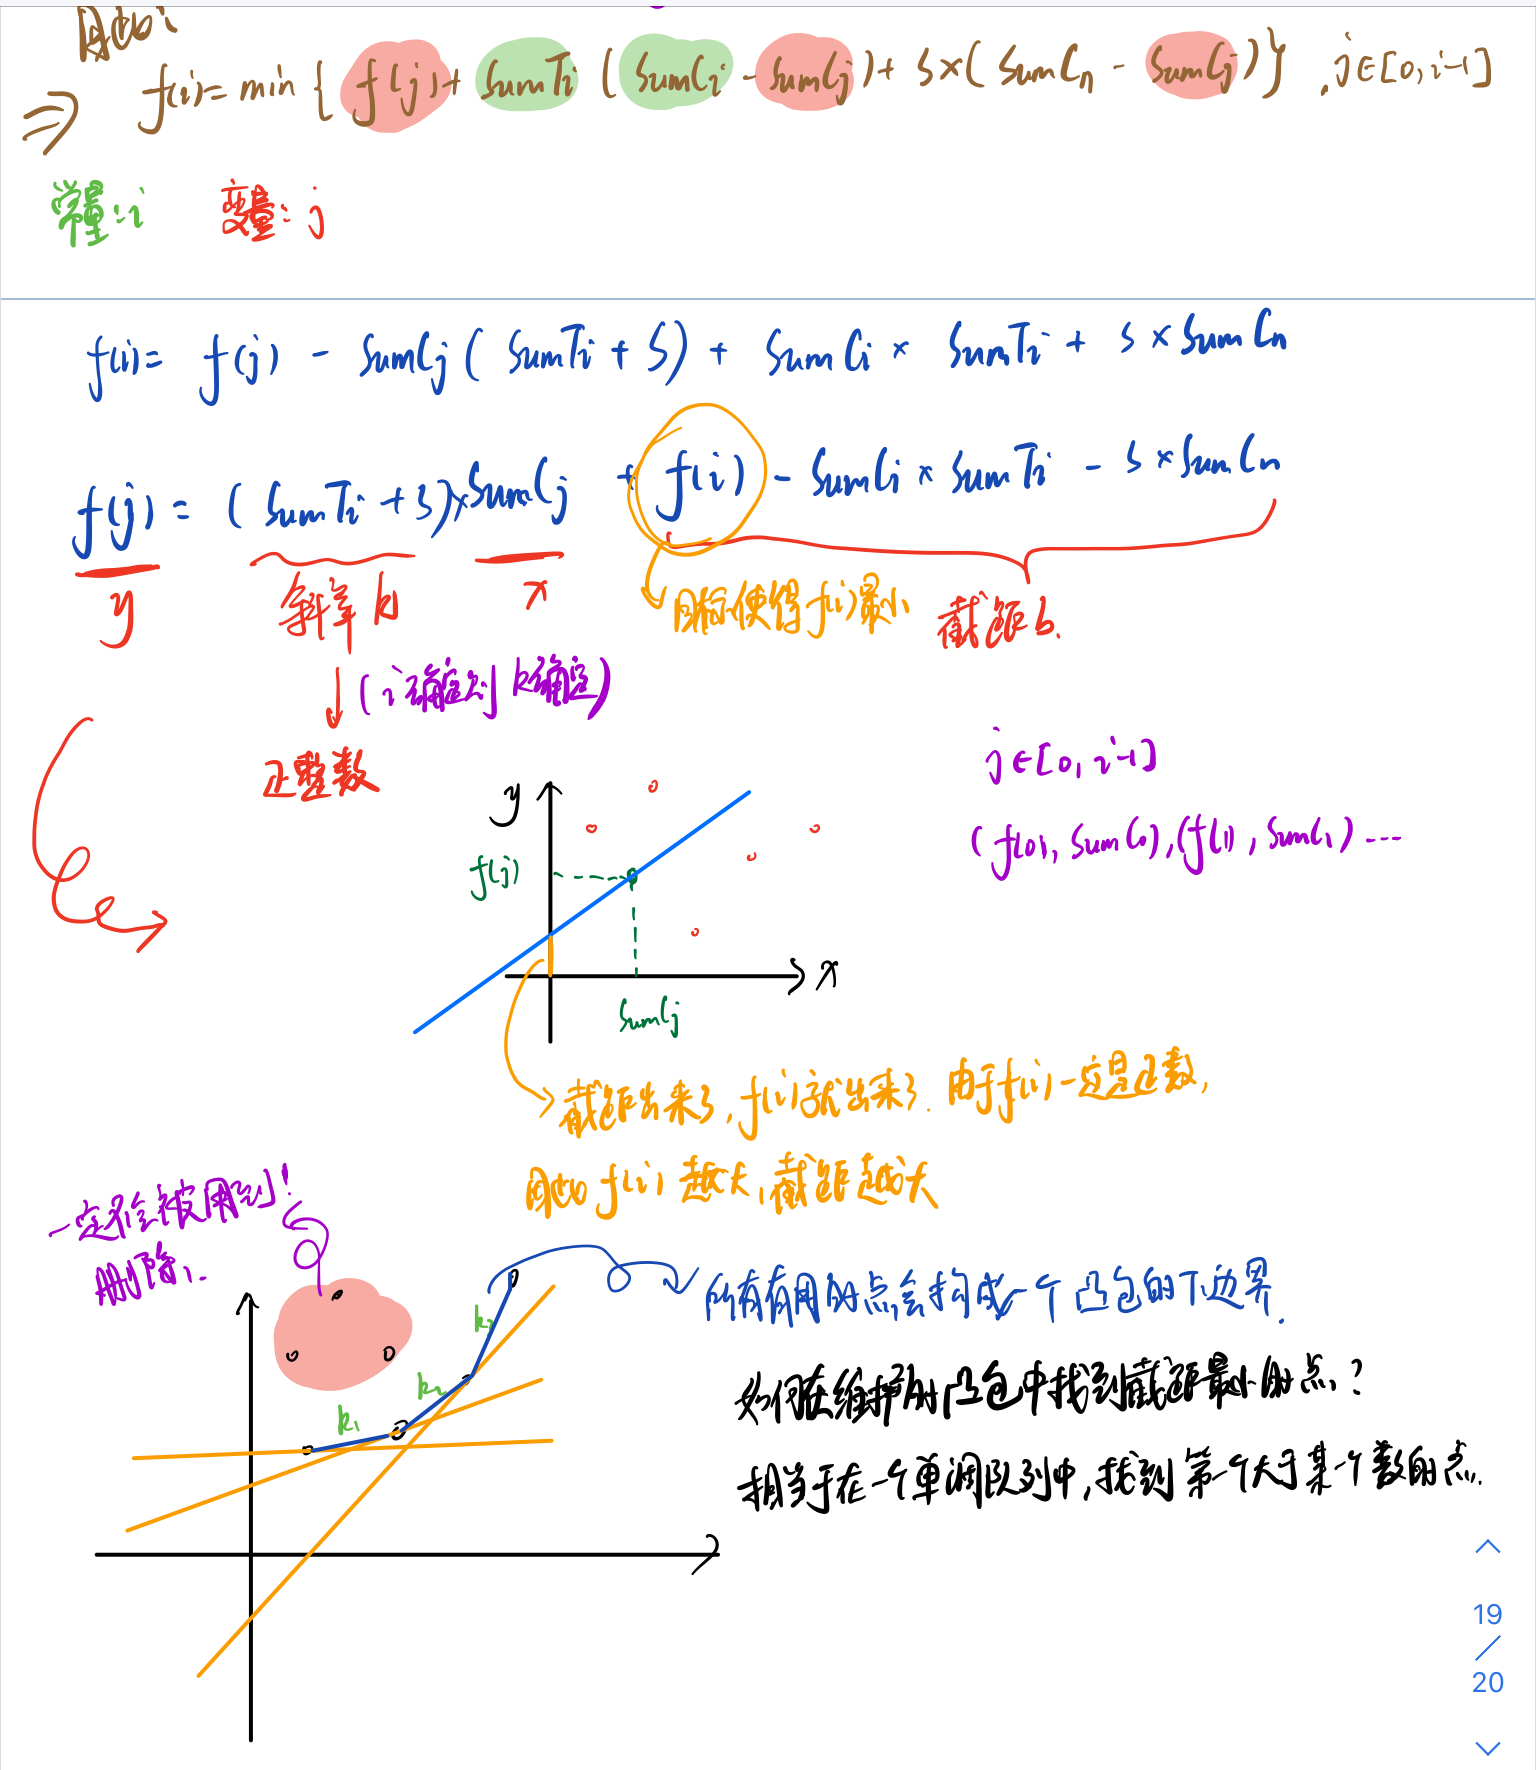 因此:
⇒ f(i) = min { f(j) + sumTi (sumCi - sumCj) + S×(sumCn - sumCj)} , j∈[0, i-1]
常量: i 变量: j
f(i) = f(j) - sumCj (sumTi + S) + sumCi × sumTi + S × sumCn
f(j) = (sumTi + S)×sumCj + f(i) - sumCi × sumTi - S × sumCn
y 斜率k x 目标使得f(i)最小 截距b.
(i确定则k确定)
正整数
j∈[0, i-1]
(f(0), sumC0), (f(1), sumC1) ...
y
f(j)
x
sumCj
截距出来了, f(i)就出来了. 由于f(i)一定是正数,
因此f(i)越大, 截距越大
一定不会被用到!
删除.
所有有用的点会构成一个凸包的下边界.
k3
k2
k1
如何在维护的凸包中找到截距最小的点?
相当于在一个单调队列中, 找到第一个大于某一个数的点.
19
/
20